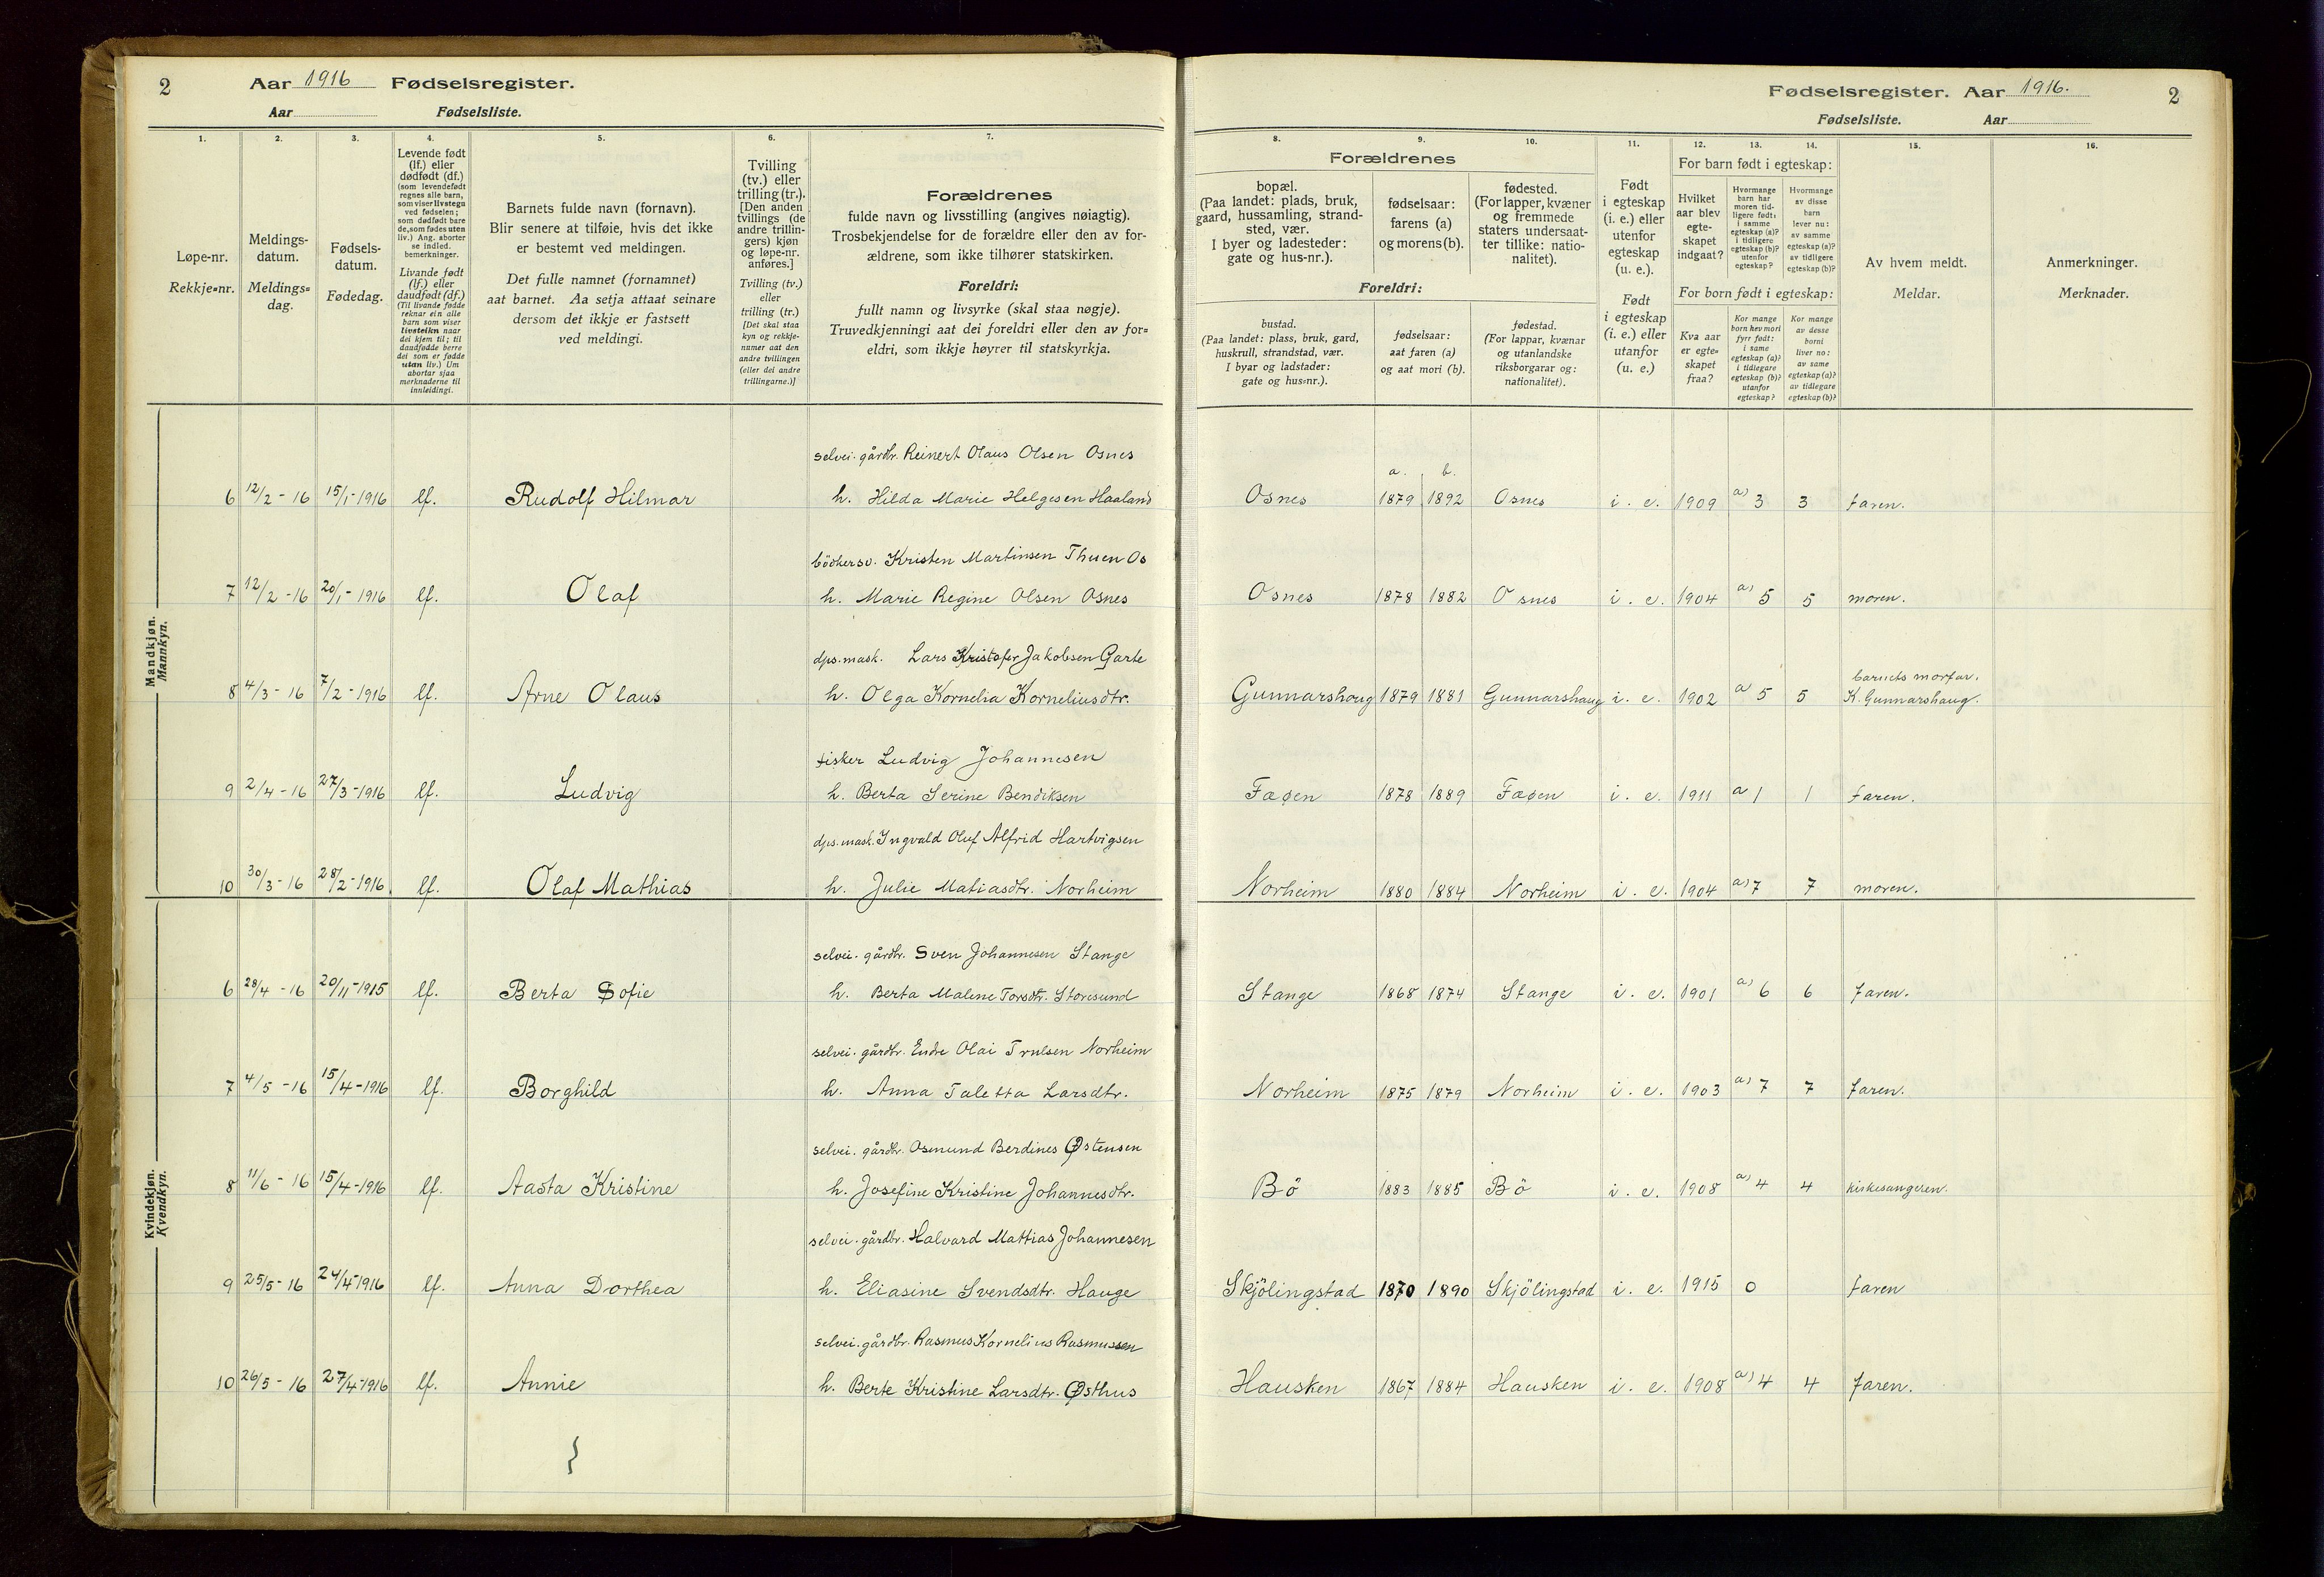 2
Aar 1916 Fødselsregister.
Aar Fødselsliste.
Fødselsregister. Aar 1916.
2
Fødselsliste. Aar
1. 2. 3. 4. 5. 6. 7. 8. 9. 10. 11. 12. 13. 14. 15. 16.
Løpe-nr.
Rekkje=nr.
Meldings-
datum.
Meldings=
dag.
Fødsels-
datum.
Fødedag.
Levende født
(lf.) eller
dødfødt (df.)
(som levendefødt
regnes alle barn,
som viser livstegn
ved fødselen;
som dødfødt bare
de, som fødes uten
liv.) Ang. aborter
se indled.
bemerkninger.
Livande født
(lf.) eller
daudfødt (df.)
(Til livande fødde
reknar ein alle
barn som viser
livsteikn naar
dei kjem til; til
daudfødde berre
dei som er fødde
utan liv.) Um
abortar sjaa
merknaderne til
innleidingi.
Barnets fulde navn (fornavn).
Blir senere at tilføie, hvis det ikke
er bestemt ved meldingen.
Det fulle namnet (fornamnet)
aat barnet. Aa setja attaat seinare
dersom det ikkje er fastsett
ved meldingi.
Tvilling
(tv.) eller
trilling (tr.).
[Den anden
tvillings (de
andre trillin-
gers) kjøn
og løpe-nr.
anføres.]
Tvilling (tv.)
eller
trilling (tr.)
[Det skal staa
kyn og rekkje-
numer aat den
andre tvillingen
(eller dei andre
trillingarne.)]
Forældrenes
fulde navn og livsstilling (angives nøiagtig).
Trosbekjendelse for de forældre eller den av for-
ældrene, som ikke tilhører statskirken.
Foreldri:
fullt namn og livsyrke (skal staa nøgje).
Truvedkjenningi aat dei foreldri eller den av for=
eldri, som ikkje høyrer til statskyrkja.
Forældrenes
bopæl.
(Paa landet: plads, bruk,
gaard, hussamling, strand-
sted, vær.
I byer og ladesteder:
gate og hus-nr.).
fødselsaar:
farens (a)
og morens (b).
fødested.
(For lapper, kvæner
og fremmede
staters undersaat-
ter tillike: natio-
nalitet).
Foreldri:
bustad.
(Paa landet: plass, bruk, gard,
huskrull, strandstad, vær.
I byar og ladstader:
gate og hus=nr.).
fødselsaar:
aat faren (a)
og aat mori (b).
fødestad.
(For lappar, kvænar
og utanlandske
riksborgarar og:
nationalitet).
Født
i egteskap
(i. e.) eller
utenfor
egteskap
(u. e.).
Født
i egteskap
(i. e.) eller
utanfor
(u. e.)
For barn født i egteskap:
Hvilket
aar blev
egte-
skapet
indgaat?
Hvormange
barn har
moren tid-
ligere født:
i samme
egteskap (a)?
i tidligere
egteskap (b)?
utenfor
egteskap?
Hvormange
av disse
barn
lever nu:
av samme
egteskap (a)?
av tidligere
egteskap (b)?
For born født i egteskap:
Kva aar
er egte=
skapet
fraa?
Kor mange
born hev mori
fyrr født:
i same
egteskap (a)?
i tidlegare
egteskap (b)?
utanfor
egteskap?
Kor mange
av desse
borni
liver no:
av same
egteskap (a)?
av tidlegare
egteskap (b)?
Av hvem meldt.
Meldar.
Anmerkninger.
Merknader.
Mandkjøn.
Mannkyn.
selvei. gårdbr. Reinert Olaus Olsen Osnes
a. b.
6 12/2 - 16 15/1-1916 lf. Rudolf Hilmar h. Hilda Marie Helgesen Haaland Osnes 1879 1892 Osnes i. e. 1909 a) 3 3 faren.
bödkersv. Kristen Martinsen Thuen Os
7 12/2 - 16 20/1-1916 lf. Olaf h. Marie Regine Olsen Osnes Osnes 1878 1882 Osnes i. e. 1904 a) 5 5 moren.
dps. mask. Lars Kristofer Jakobsen Garte barnets morfar.
8 4/3 - 16 7/2-1916 lf. Arne Olaus h. Olga Kornelia Korneliusdtr. Gunnarshaug 1879 1881 Gunnarshaug i. e. 1902 a 5 5 K. Gunnarshaug.
fisker Ludvig Johannesen
9 2/4 - 16 27/3-1916 lf. Ludvig h. Berta Serine Bendiksen Fæøen 1878 1889 Fæøen i. e. 1911 a 1 1 faren.
dps. mask. Ingvald Oluf Alfrid Hartvigsen
10 30/3 - 16 28/2-1916. lf. Olaf Mathias h. Julie Matiasdtr. Norheim Norheim 1880 1884 Norheim i. e. 1904 a) 7 7 moren.
Kvindekjøn.
Kvendkyn.
selvei. gårdbr. Sven Johannesen Stange
6 28/4 - 16 20/11-1915 lf. Berta Sofie h. Berta Malene Torsdtr. Storesund Stange 1868 1874 Stange i. e. 1901 a) 6 6 faren.
selvei. gårdbr. Endre Olai Trulsen Norheim
7 4/5 - 16 15/4-1916 lf. Borghild h. Anna Taletta Larsdtr. Norheim 1875 1879 Norheim i. e. 1903 a) 7 7 faren.
selvei. gårdbr. Osmund Berdines Østensen
8 11/6 - 16 15/4-1916 lf. Aasta Kristine h. Josefine Kristine Johannesdtr. Bö 1883 1885 Bö i. e. 1908 a) 4 4 kirkesangeren.
selvei. gårdbr. Halvard Mattias Johannesen
9 25/5 - 16 24/4-1916 lf. Anna Dorthea h. Eliasine Svendsdtr. Hauge Skjölingstad 1870 1890 Skjölingstad i. e. 1915 0 faren
selvei. gårdbr. Rasmus Kornelius Rasmussen
10 26/5 - 16 27/4-1916 lf. Annie h. Berte Kristine Larsdtr. Østhus Hausken 1867 1884 Hausken i. e. 1908 a) 4 4 faren.